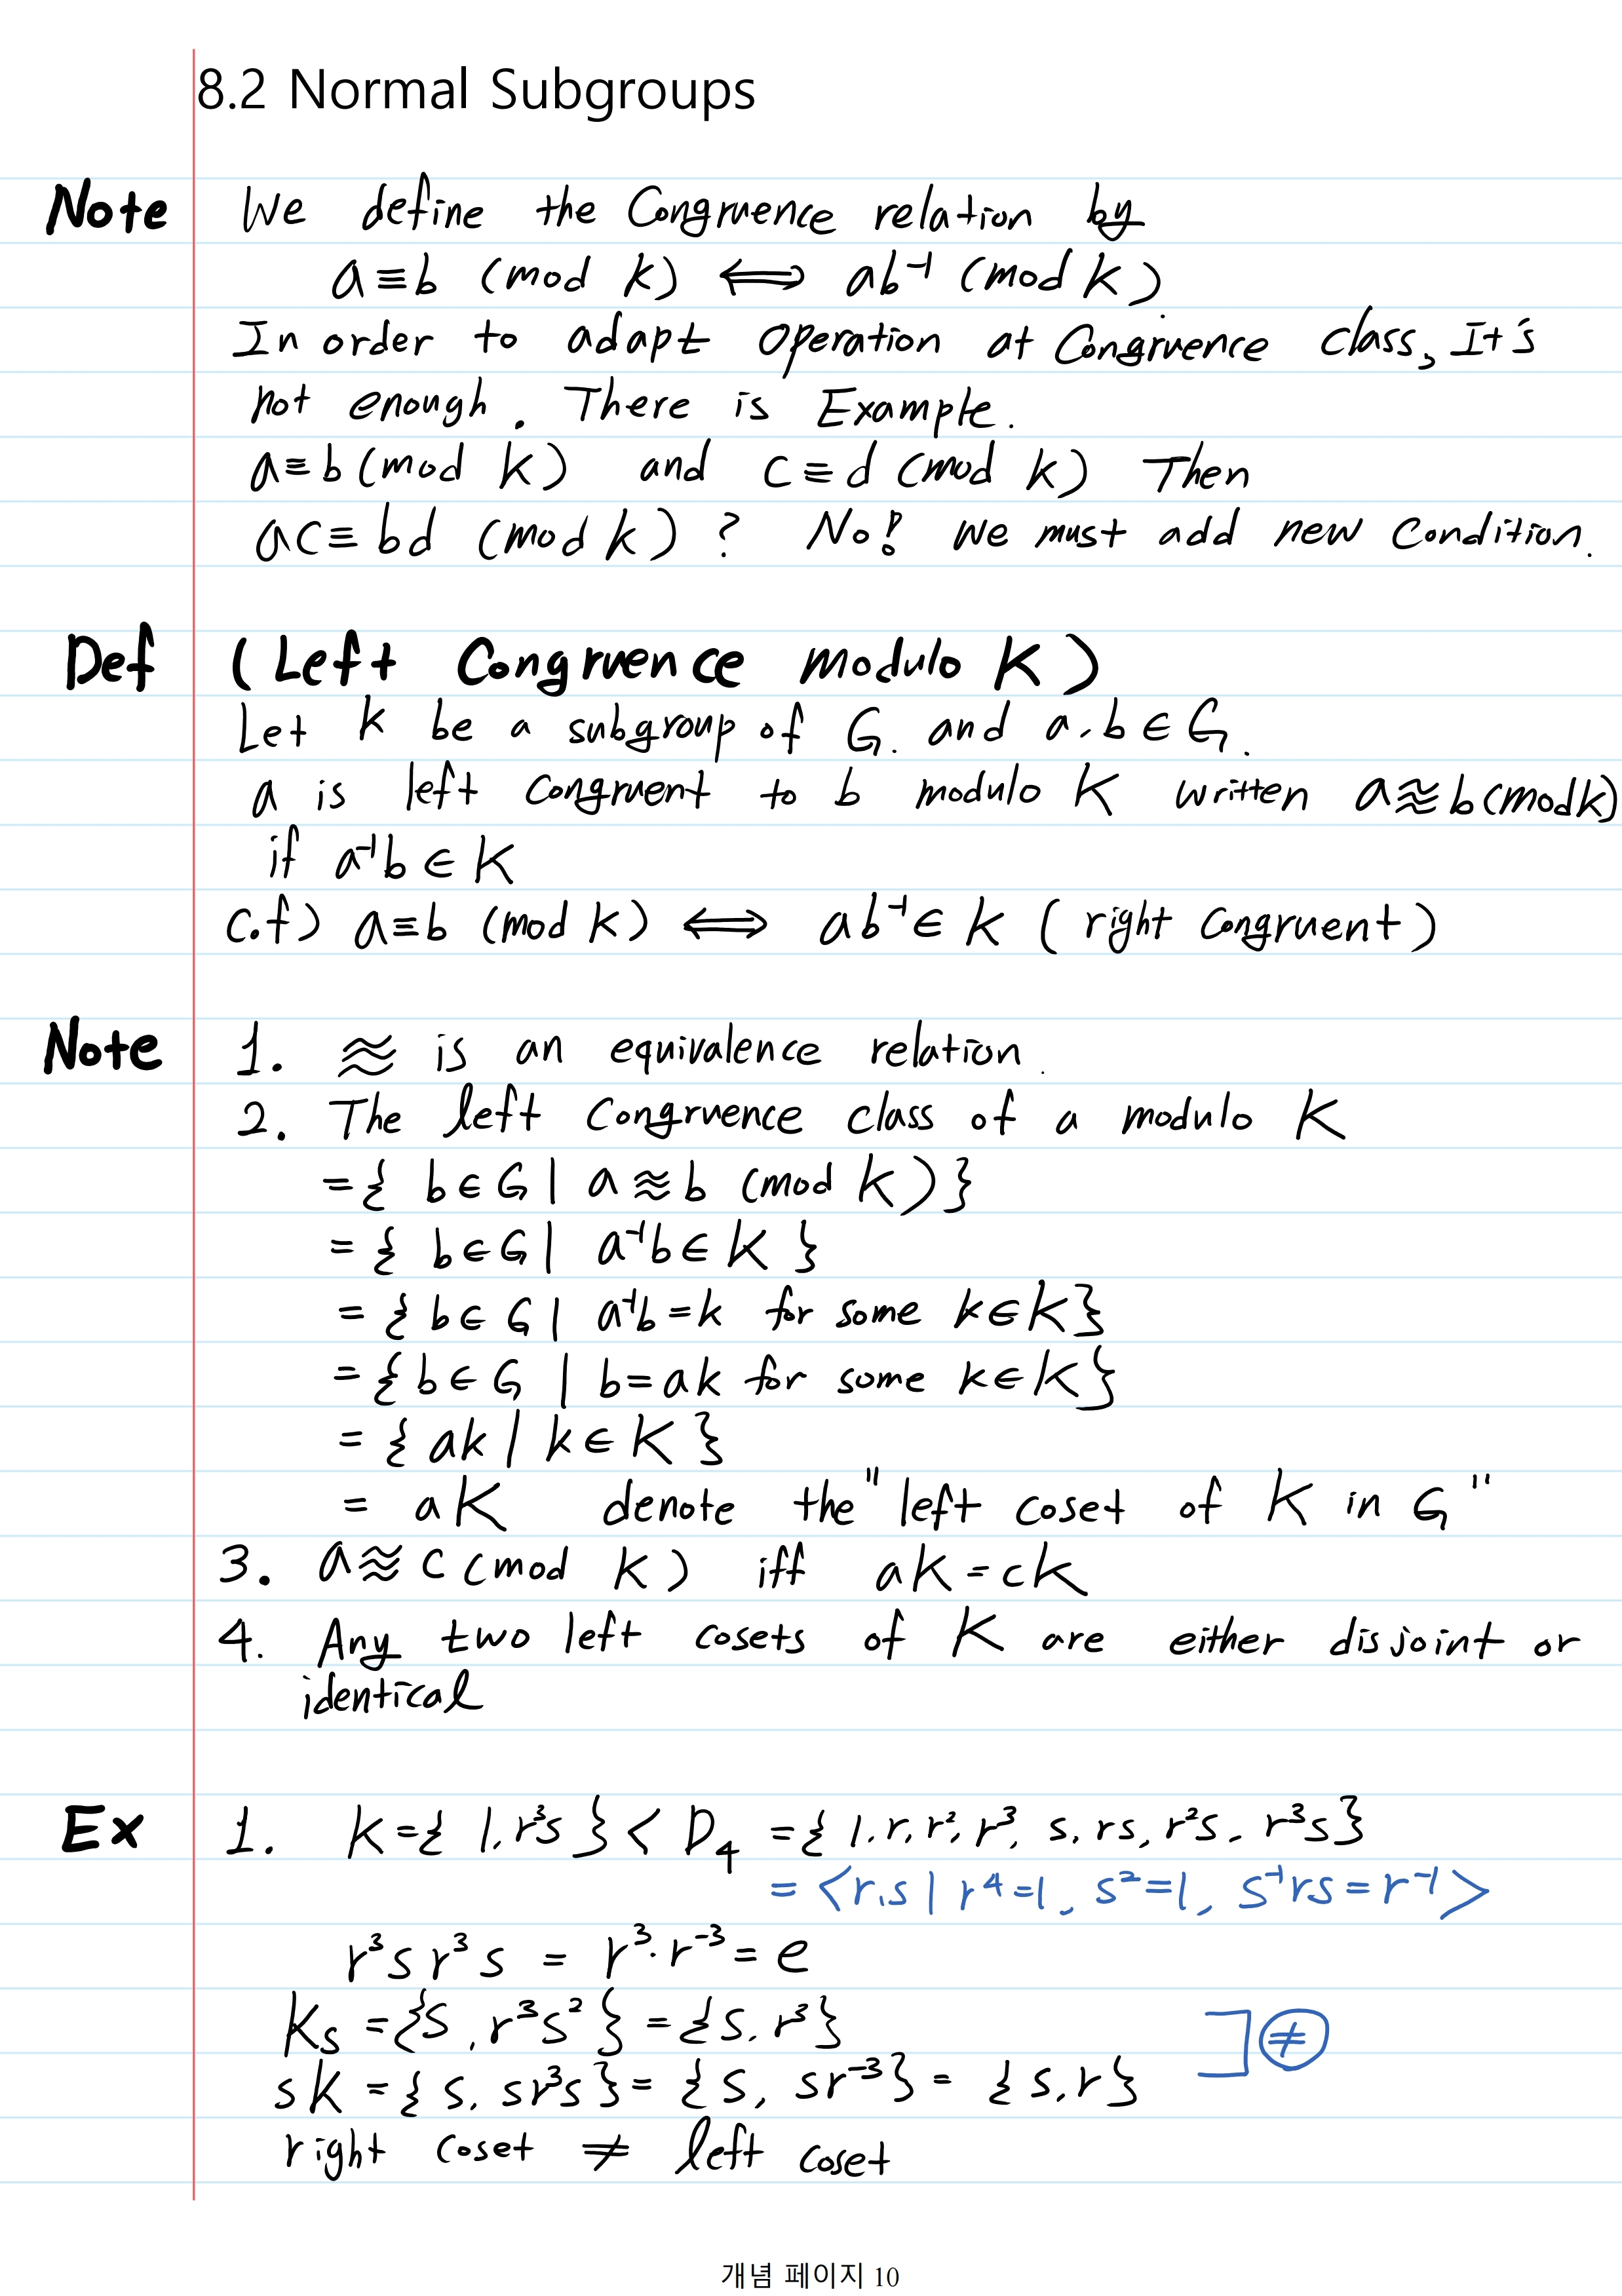 8.2 Normal Subgroups
Note We define the Congruence relation by
a≡b (mod K) ⟺ ab⁻¹ (mod K).
In order to adapt operation at Congruence class, It's
not enough. There is Example.
a≡b (mod K) and c≡d (mod K) Then
ac≡bd (mod K)? No! we must add new Condition.
Def (Left Congruence modulo K)
Let K be a subgroup of G. and a, b ∈ G.
a is left congruent to b modulo K written a≋b (mod K)
if a⁻¹b ∈ K
c.f) a≡b (mod K) ⟺ ab⁻¹ ∈ K (right congruent)
Note 1. ≋ is an equivalence relation.
2. The left congruence class of a modulo K
={ b∈G | a≋b (mod K)}
={ b∈G | a⁻¹b∈K }
={ b∈G | a⁻¹b=k for some k∈K}
={ b∈G | b=ak for some k∈K}
={ ak | k∈K }
= aK denote the "left coset of K in G"
3. a≋c (mod K) iff aK=cK
4. Any two left cosets of K are either disjoint or
identical
Ex 1. K={ 1, r³s } < D₄ ={ 1, r, r², r³, s, rs, r²s, r³s}
= <r,s | r⁴=1, s²=1, s⁻¹rs=r⁻¹>
r³sr³s = r³·r⁻³ = e
Ks ={s, r³s²} ={s, r³}
sK ={ s, sr³s}= {s, sr⁻³} = {s,r} ≠
right coset ≠ left coset
개념 페이지 10